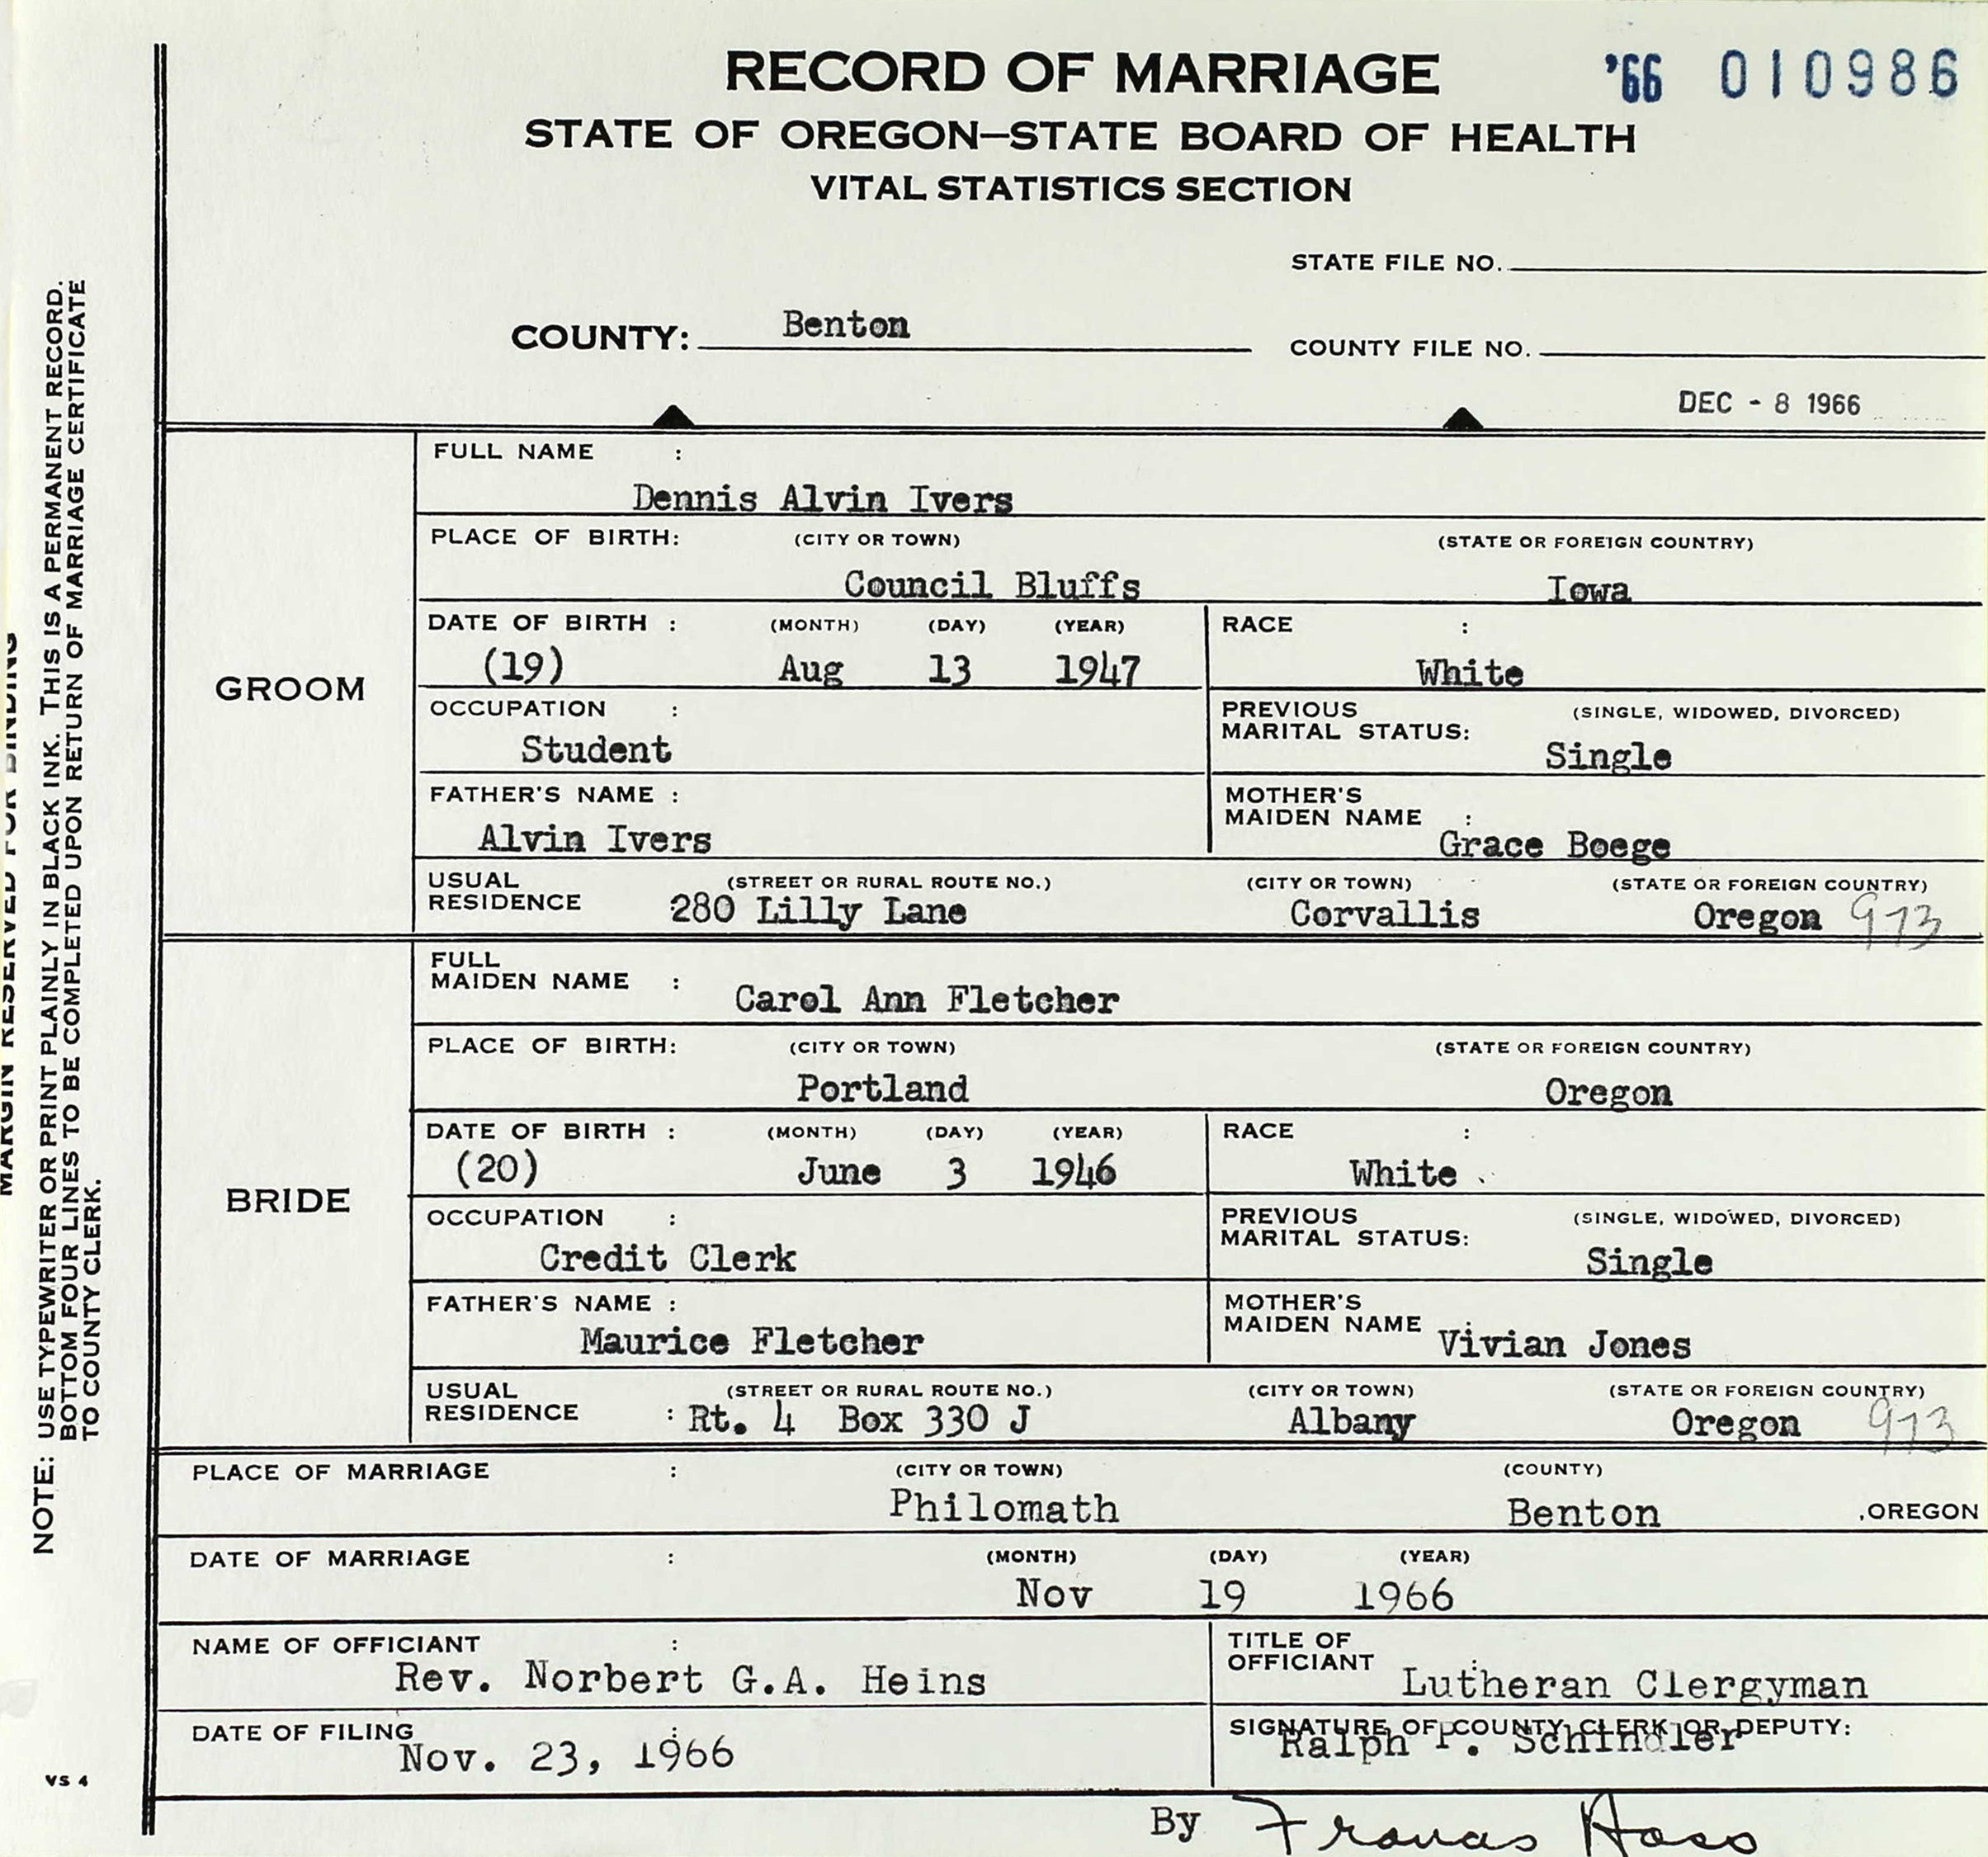 RECORD OF MARRIAGE '66 010986
STATE OF OREGON—STATE BOARD OF HEALTH
VITAL STATISTICS SECTION
STATE FILE NO.
COUNTY: Benton
COUNTY FILE NO.
DEC - 8 1966
MARGIN RESERVED FOR BINDING
NOTE: USE TYPEWRITER OR PRINT PLAINLY IN BLACK INK. THIS IS A PERMANENT RECORD.
BOTTOM FOUR LINES TO BE COMPLETED UPON RETURN OF MARRIAGE CERTIFICATE
TO COUNTY CLERK.
VS 4
GROOM
FULL NAME :
Dennis Alvin Ivers
PLACE OF BIRTH: (CITY OR TOWN) (STATE OR FOREIGN COUNTRY)
Council Bluffs Iowa
DATE OF BIRTH : (MONTH) (DAY) (YEAR) RACE :
(19) Aug 13 1947 White
OCCUPATION : PREVIOUS (SINGLE, WIDOWED, DIVORCED)
MARITAL STATUS:
Student Single
FATHER'S NAME : MOTHER'S
MAIDEN NAME :
Alvin Ivers Grace Boege
USUAL (STREET OR RURAL ROUTE NO.) (CITY OR TOWN) (STATE OR FOREIGN COUNTRY)
RESIDENCE 280 Lilly Lane Corvallis Oregon 973
BRIDE
FULL
MAIDEN NAME : Carol Ann Fletcher
PLACE OF BIRTH: (CITY OR TOWN) (STATE OR FOREIGN COUNTRY)
Portland Oregon
DATE OF BIRTH : (MONTH) (DAY) (YEAR) RACE :
(20) June 3 1946 White
OCCUPATION : PREVIOUS (SINGLE, WIDOWED, DIVORCED)
MARITAL STATUS:
Credit Clerk Single
FATHER'S NAME : MOTHER'S
MAIDEN NAME :
Maurice Fletcher Vivian Jones
USUAL (STREET OR RURAL ROUTE NO.) (CITY OR TOWN) (STATE OR FOREIGN COUNTRY)
RESIDENCE : Rt. 4 Box 330 J Albany Oregon 973
PLACE OF MARRIAGE : (CITY OR TOWN) (COUNTY)
Philomath Benton ,OREGON
DATE OF MARRIAGE : (MONTH) (DAY) (YEAR)
Nov 19 1966
NAME OF OFFICIANT : TITLE OF
OFFICIANT :
Rev. Norbert G.A. Heins Lutheran Clergyman
DATE OF FILING : SIGNATURE OF COUNTY CLERK OR DEPUTY:
Nov. 23, 1966 Ralph P. Schindler
By Frances Hass